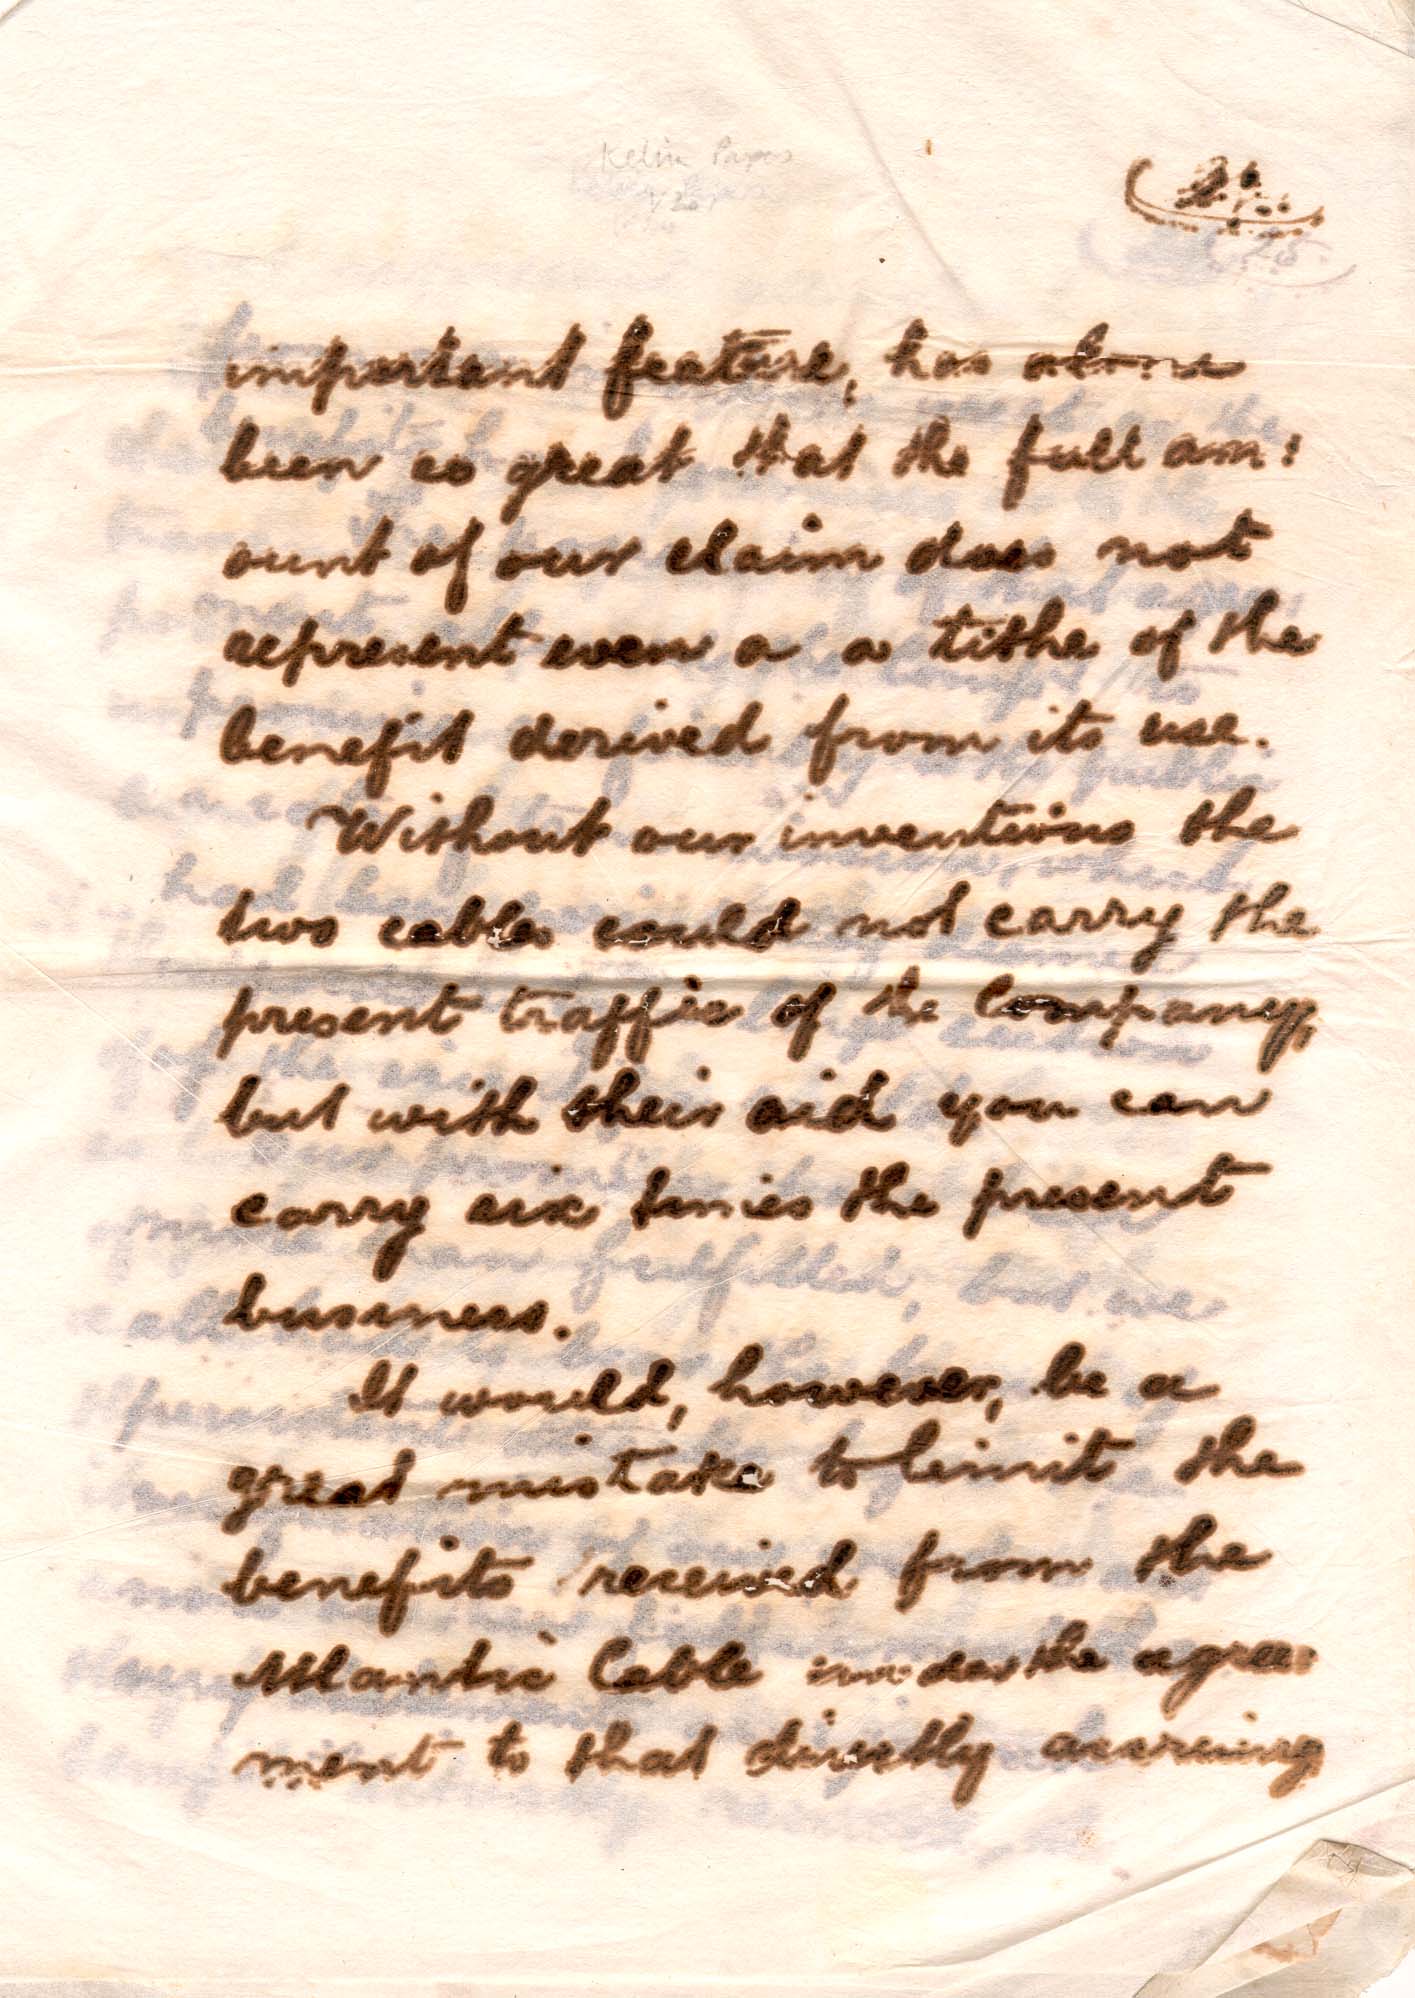 Kelvin Papers
important feature, has alone
been so great that the full am:
ount of our claim does not
represent even a a tithe of the
benefit derived from its use.
Without our inventions the
two cables could not carry the
present traffic of the Company,
but with their aid you can
carry six times the present
business.
It would, however, be a
great mistake to limit the
benefits received from the
Atlantic Cable under the agree:
ment to that directly accruing